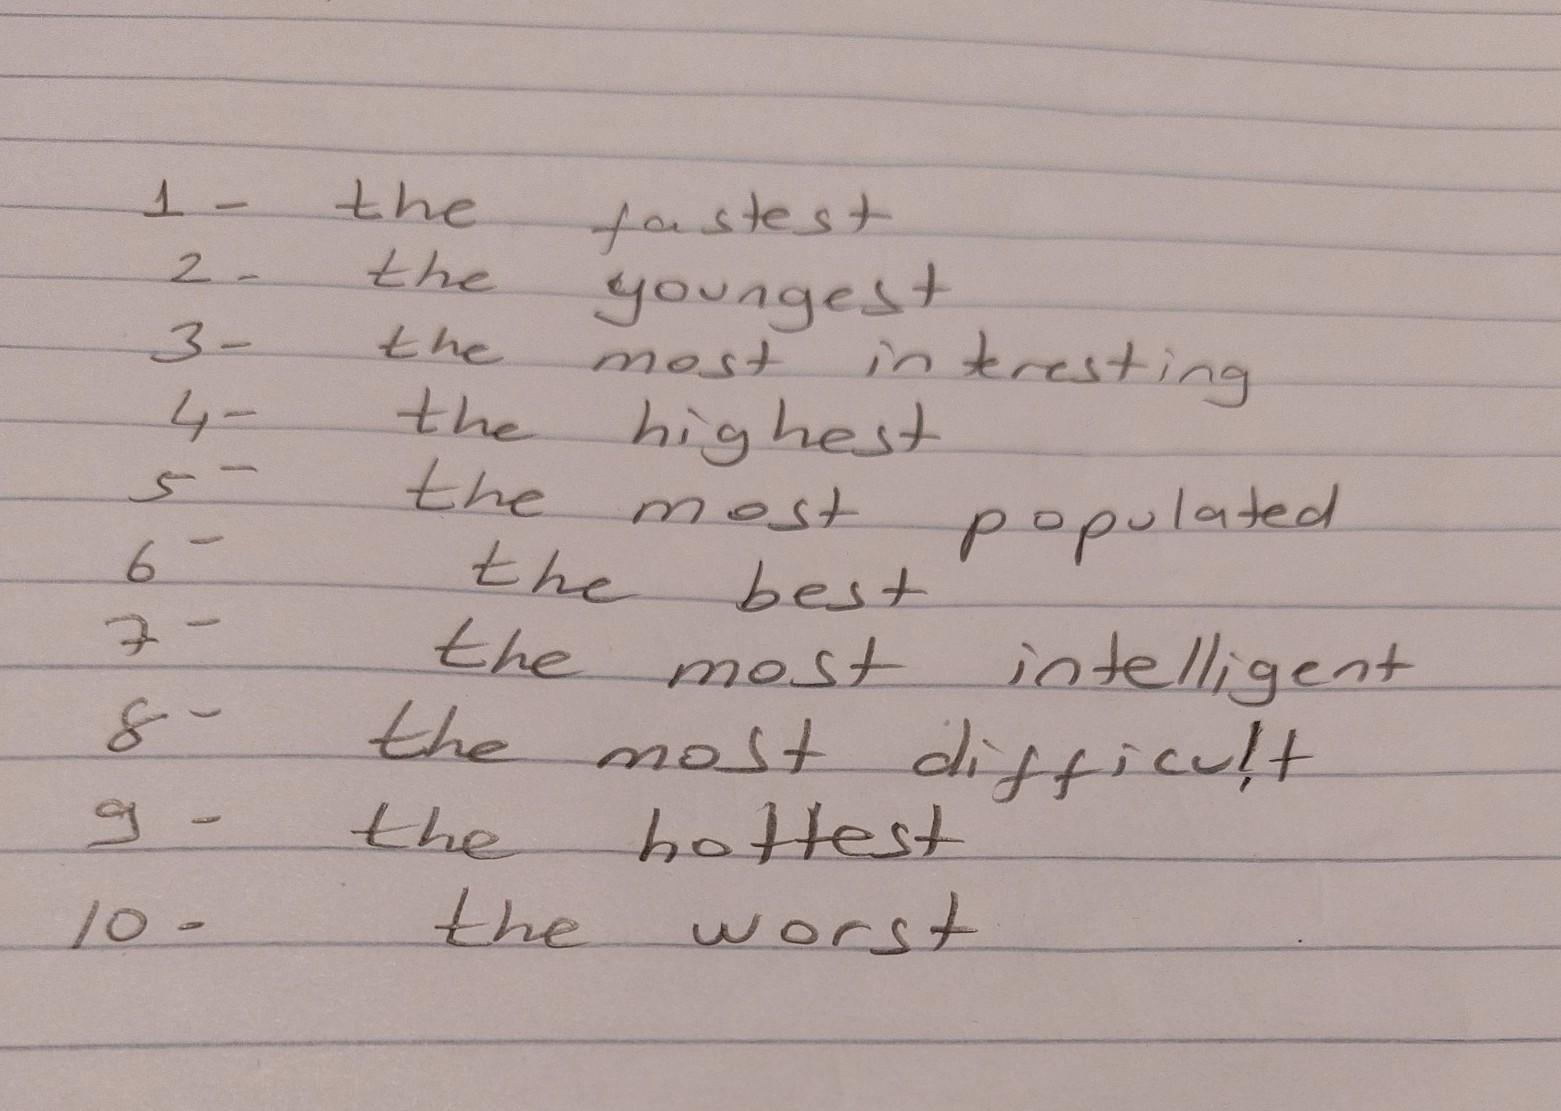 1 - the fastest
2 - the youngest
3 - the most interesting
4 - the highest
5 - the most populated
6 - the best
7 - the most intelligent
8 - the most difficult
9 - the hottest
10 - the worst